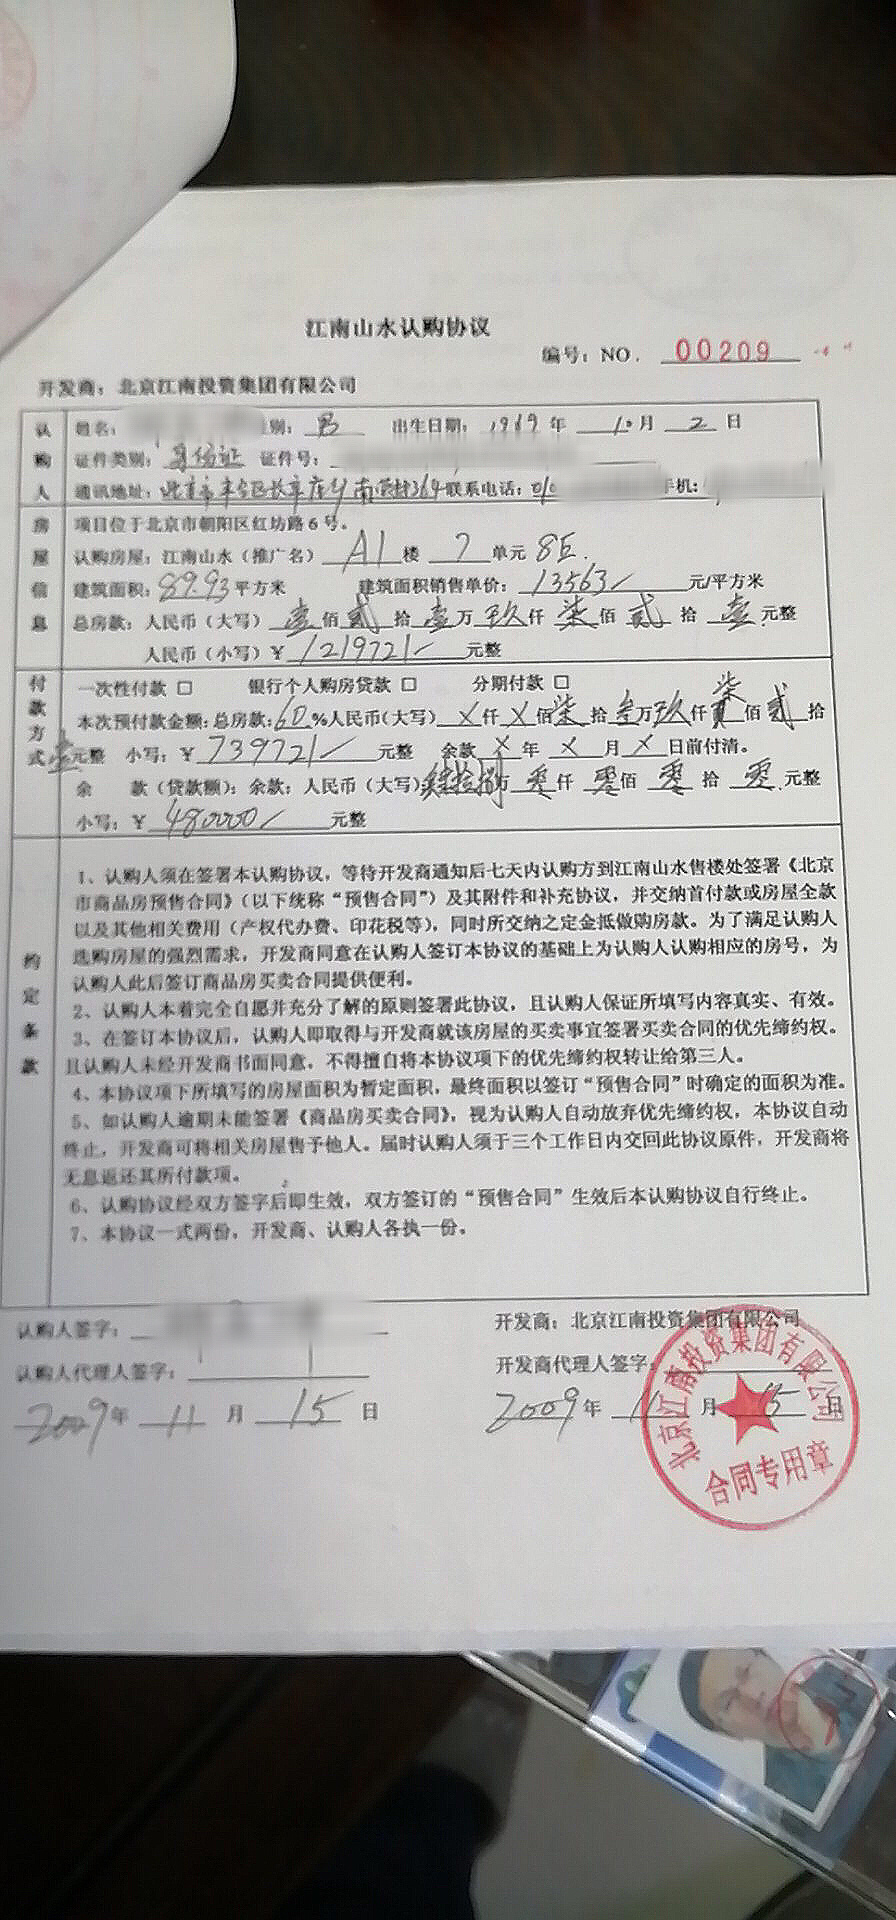 江南山水认购协议
编号：NO. 00209
开发商：北京江南投资集团有限公司
认购人
姓名： 别：男 出生日期：1989年10月2日
证件类别：身份证 证件号：
通讯地址：北京市丰台区长辛店乡 364 联系电话：010 手机：
房屋信息
项目位于北京市朝阳区红坊路6号。
认购房屋：江南山水（推广名） A1 楼 7 单元 8E.
建筑面积：89.93平方米 建筑面积销售单价：13563/元/平方米
总房款：人民币（大写）壹佰贰拾壹万玖仟柒佰贰拾壹元整
人民币（小写）￥1219721/元整
付款方式
一次性付款 □ 银行个人购房贷款 □ 分期付款 □
本次预付款金额：总房款：60%人民币（大写）X仟X佰柒拾叁万玖仟柒佰贰拾
壹元整 小写：￥739721/元整 余款X年X月X日前付清。
余 款（贷款额）：余款：人民币（大写）肆拾捌万零仟零佰零拾零元整
小写：￥480000/元整
约定条款
1、认购人须在签署本认购协议，等待开发商通知后七天内认购方到江南山水售楼处签署《北京
市商品房预售合同》（以下统称“预售合同”）及其附件和补充协议，并交纳首付款或房屋全款
以及其他相关费用（产权代办费、印花税等），同时所交纳之定金抵做购房款。为了满足认购人
选购房屋的强烈需求，开发商同意在认购人签订本协议的基础上为认购人认购相应的房号，为
认购人此后签订商品房买卖合同提供便利。
2、认购人本着完全自愿并充分了解的原则签署此协议，且认购人保证所填写内容真实、有效。
3、在签订本协议后，认购人即取得与开发商就该房屋的买卖事宜签署买卖合同的优先缔约权。
且认购人未经开发商书面同意，不得擅自将本协议项下的优先缔约权转让给第三人。
4、本协议项下所填写的房屋面积为暂定面积，最终面积以签订“预售合同”时确定的面积为准。
5、如认购人逾期未能签署《商品房买卖合同》，视为认购人自动放弃优先缔约权，本协议自动
终止，开发商可将相关房屋售予他人。届时认购人须于三个工作日内交回此协议原件，开发商将
无息返还其所付款项。
6、认购协议经双方签字后即生效，双方签订的“预售合同”生效后本认购协议自行终止。
7、本协议一式两份，开发商、认购人各执一份。
认购人签字： 开发商：北京江南投资集团有限公司
认购人代理人签字： 开发商代理人签字：
2009年11月15日 2009年11月15日
北京江南投资集团有限公司
合同专用章